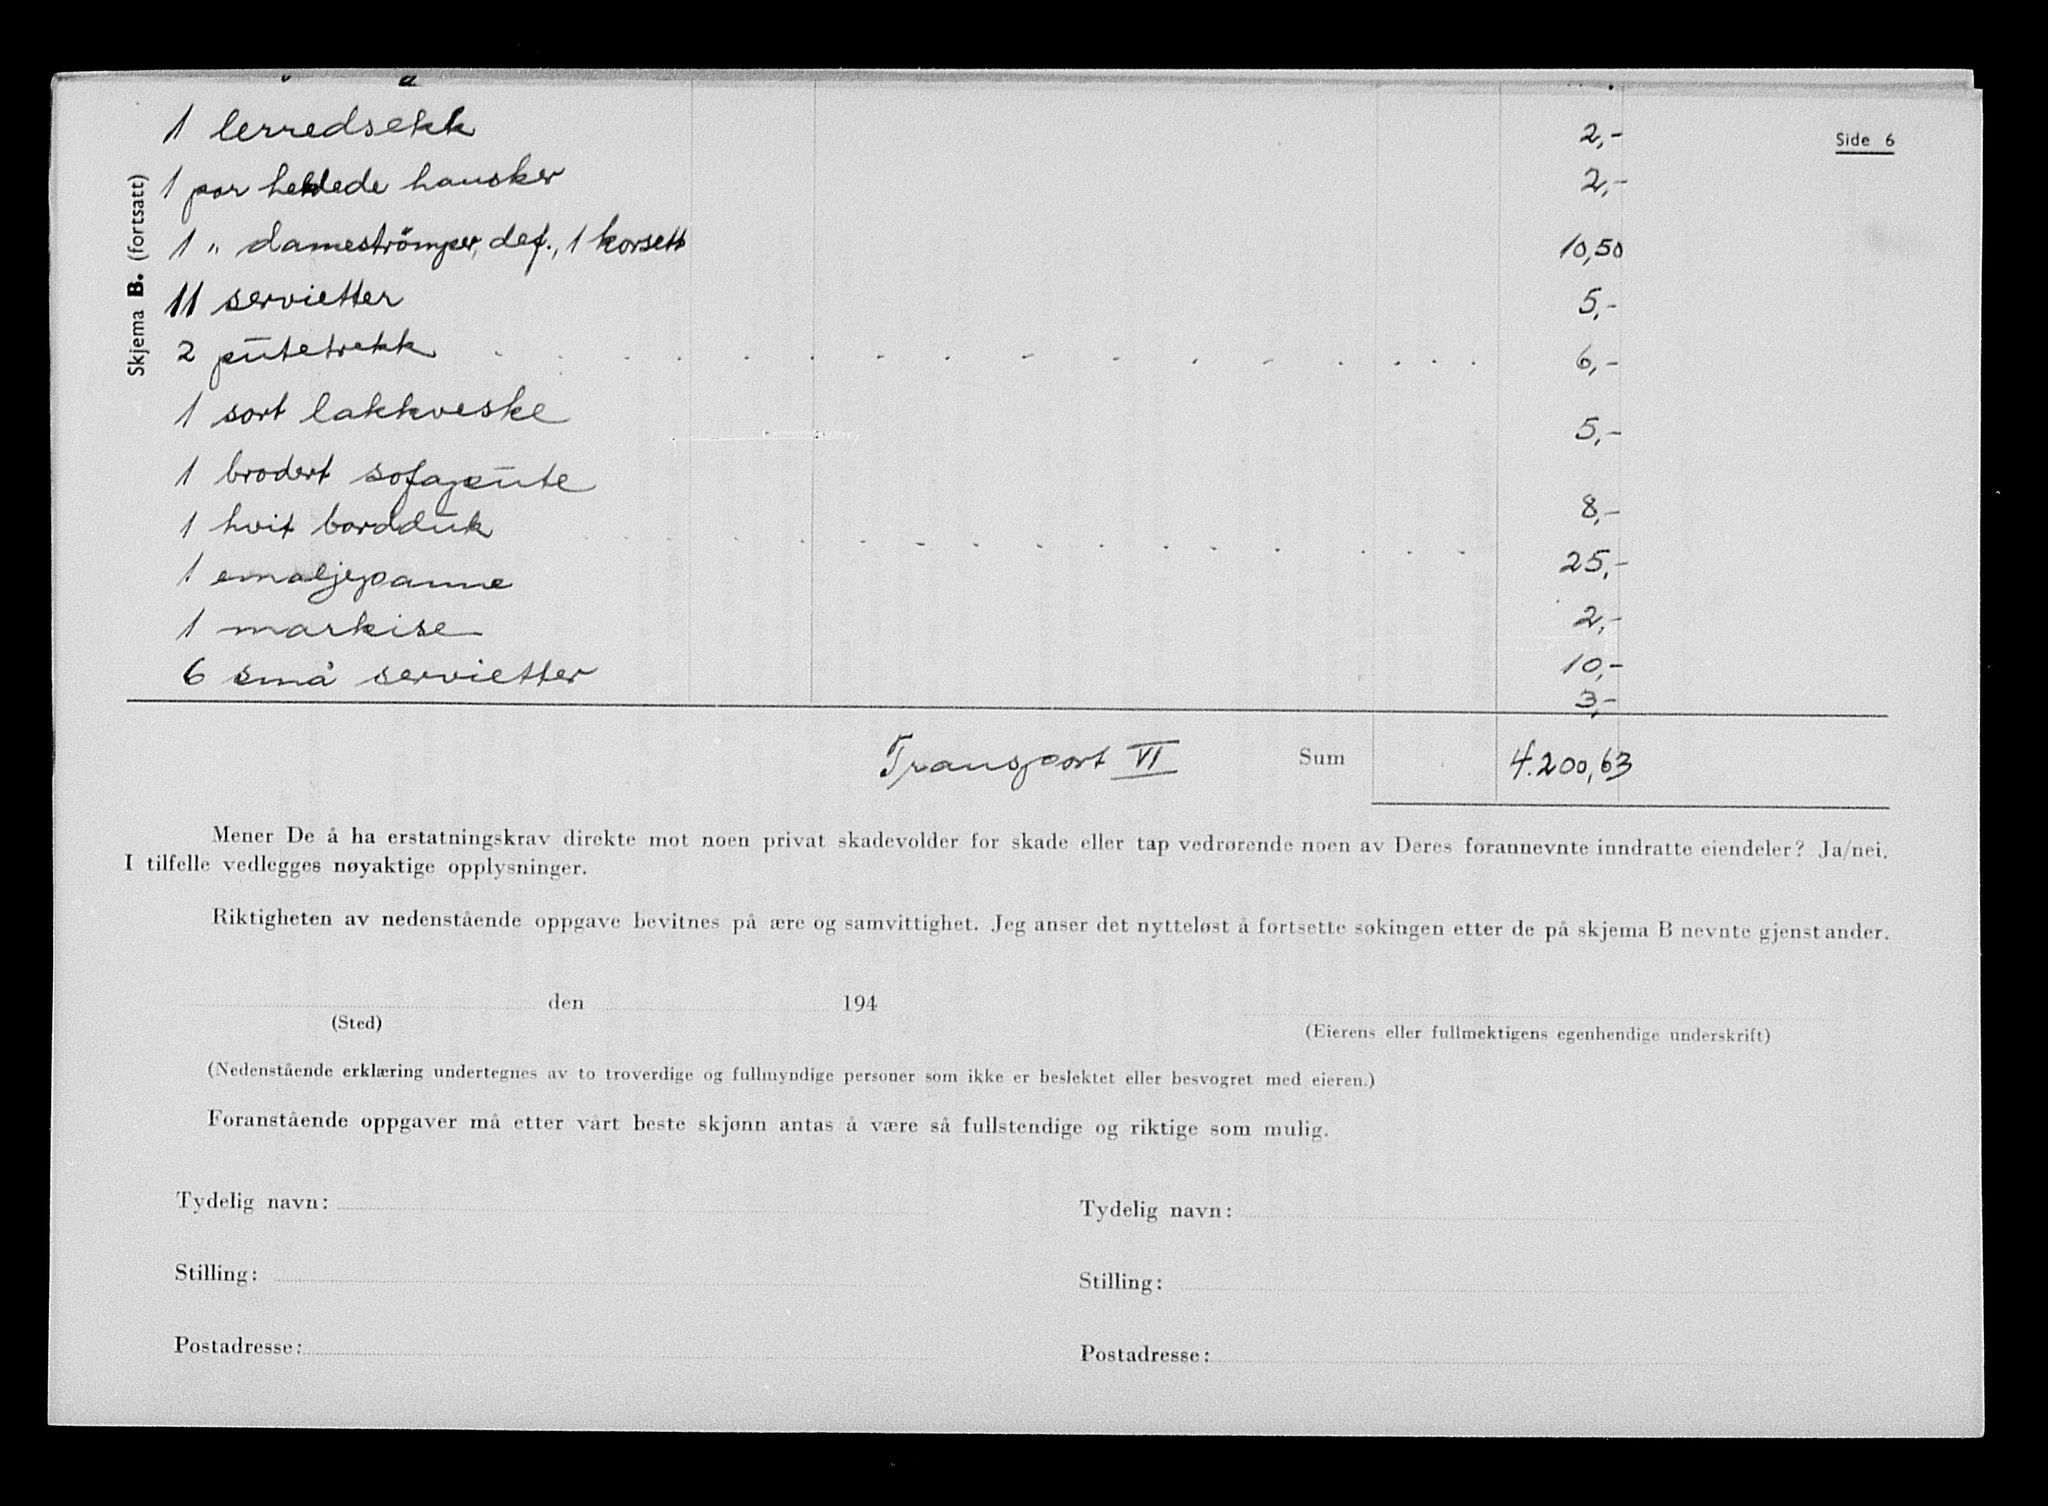 Side 6
Skjema B. (fortsatt)
1 lerredsekk 2,-
1 par heklede hansker 2,-
1 " dameströmper, def., 1 korsett 10,50
11 servietter 5,-
2 putetrekk 6,-
1 sort lakkveske 5,-
1 brodert sofapute 8,-
1 hvit bordduk 25,-
1 emaljepanne 2,-
1 markise 10,-
6 små servietter 3,-
Transport VI Sum 4.200,63
Mener De å ha erstatningskrav direkte mot noen privat skadevolder for skade eller tap vedrørende noen av Deres forannevnte inndratte eiendeler? Ja/nei.
I tilfelle vedlegges nøyaktige opplysninger.
Riktigheten av nedenstående oppgave bevitnes på ære og samvittighet. Jeg anser det nytteløst å fortsette søkingen etter de på skjema B nevnte gjenstander.
den 194
(Sted)
(Eierens eller fullmektigens egenhendige underskrift)
(Nedenstående erklæring undertegnes av to troverdige og fullmyndige personer som ikke er beslektet eller besvogret med eieren.)
Foranstående oppgaver må etter vårt beste skjønn antas å være så fullstendige og riktige som mulig.
Tydelig navn: Tydelig navn:
Stilling: Stilling:
Postadresse: Postadresse: